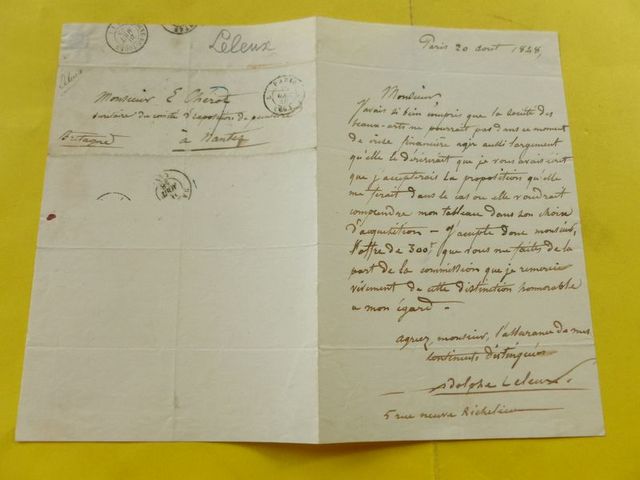 Leleux
PARIS
Monsieur E Chérot
à Nantes
Bretagne
Paris 20 aout 1848,
Monsieur
J'avais si bien compris que la société des
beaux-arts ne pourrait pas dans ce moment
de crise financière agir aussi largement
qu'elle le désirerait que je vous avais écrit
que j'accepterais la proposition qu'elle
me ferait dans le cas ou elle voudrait
comprendre mon tableau dans son choix
d'acquisition - J'accepte donc monsieur,
l'offre de 300f que vous me faites de la
part de la commission que je remercie
vivement de cette distinction honorable
a mon égard.
agréez, monsieur, l'assurance de mes
sentiments distingués
Adolphe Leleux.
5 rue neuve Richelieu